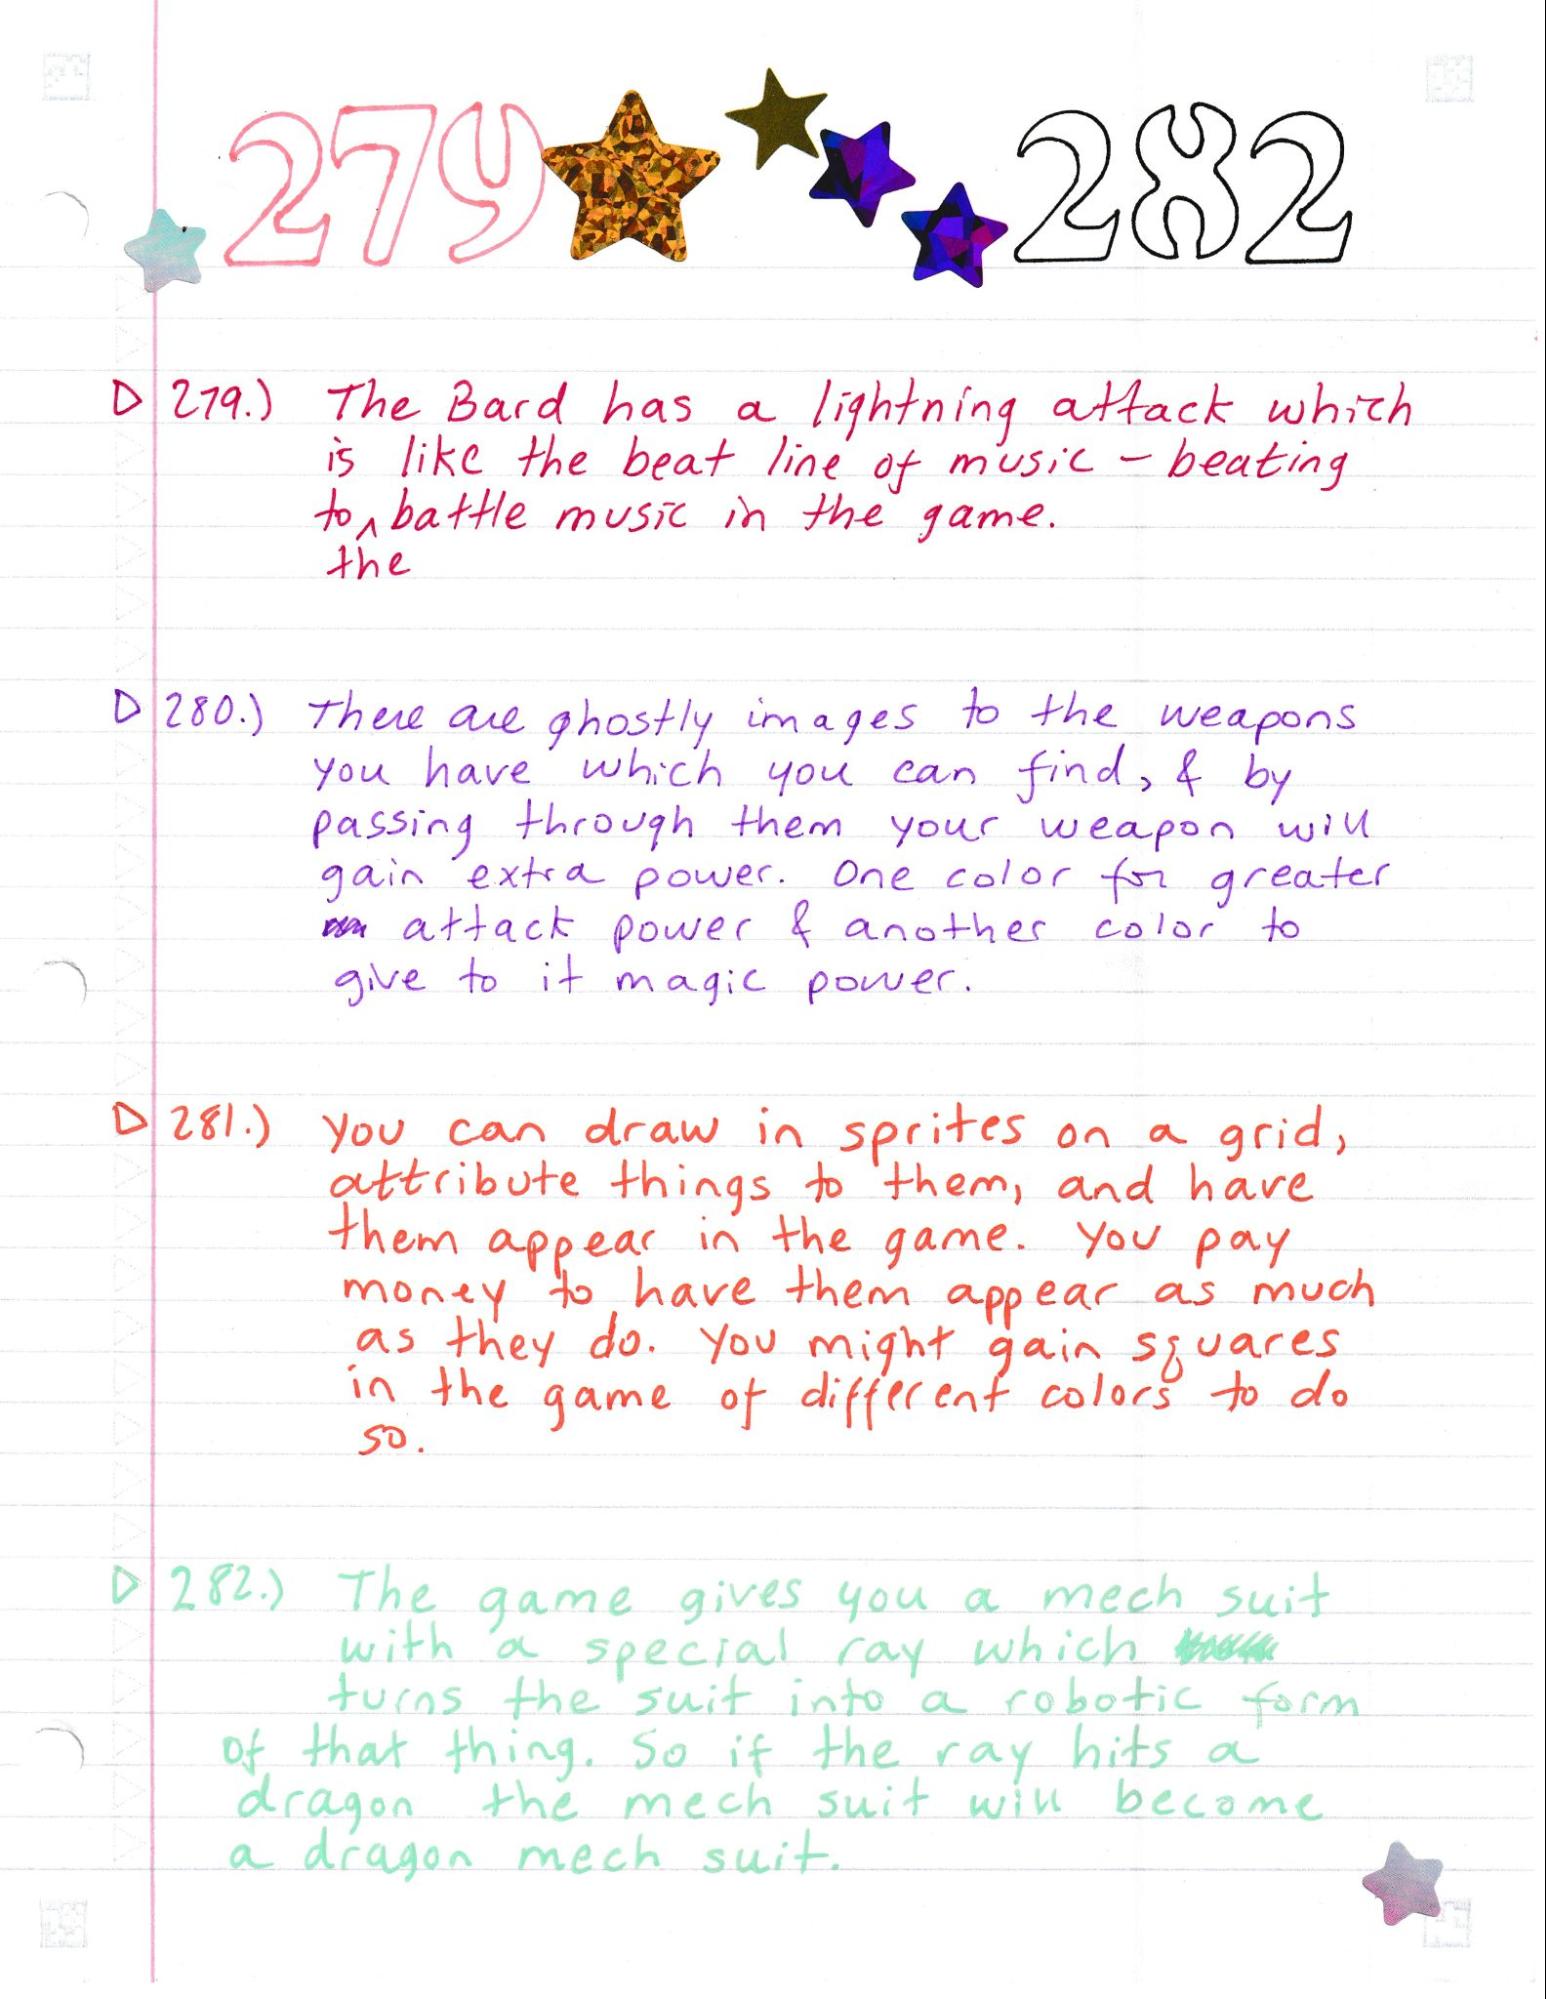 279 282
279.) The Bard has a lightning attack which
is like the beat line of music – beating
to ^ battle music in the game.
the
280.) There are ghostly images to the weapons
you have which you can find, & by
passing through them your weapon will
gain extra power. One color for greater
attack power & another color to
give to it magic power.
281.) You can draw in sprites on a grid,
attribute things to them, and have
them appear in the game. You pay
money to have them appear as much
as they do. You might gain squares
in the game of different colors to do
so.
282.) The game gives you a mech suit
with a special ray which
turns the suit into a robotic form
of that thing. So if the ray hits a
dragon the mech suit will become
a dragon mech suit.